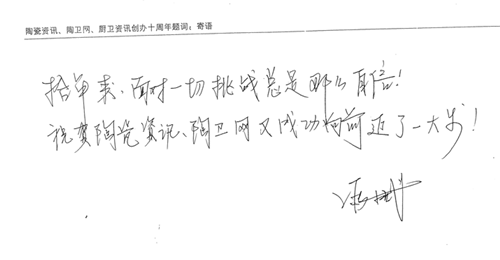 陶瓷资讯、陶卫网、厨卫资讯创办十周年题词：寄语
括单表、面对一切挑战总是那么自信！
祝贺陶瓷资讯、陶卫网又成功向前迈了一大步！